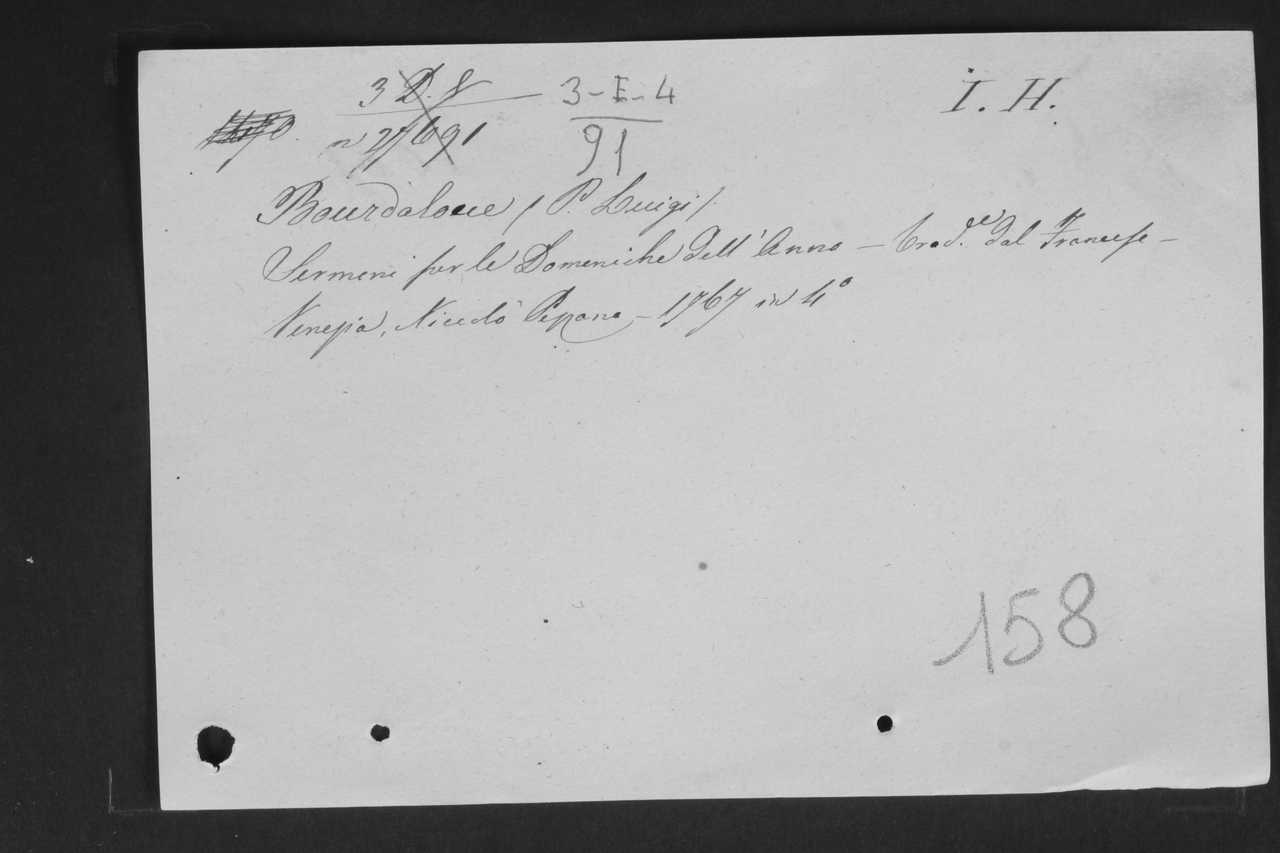 3 D. 8 — 3-E-4 I. H.
n 27691 91
Bourdaloue (P. Luigi)
Sermoni per le Domeniche dell'Anno — trad.ti dal Francese —
Venezia, Nicolò Pezzana — 1767 in 4°
158